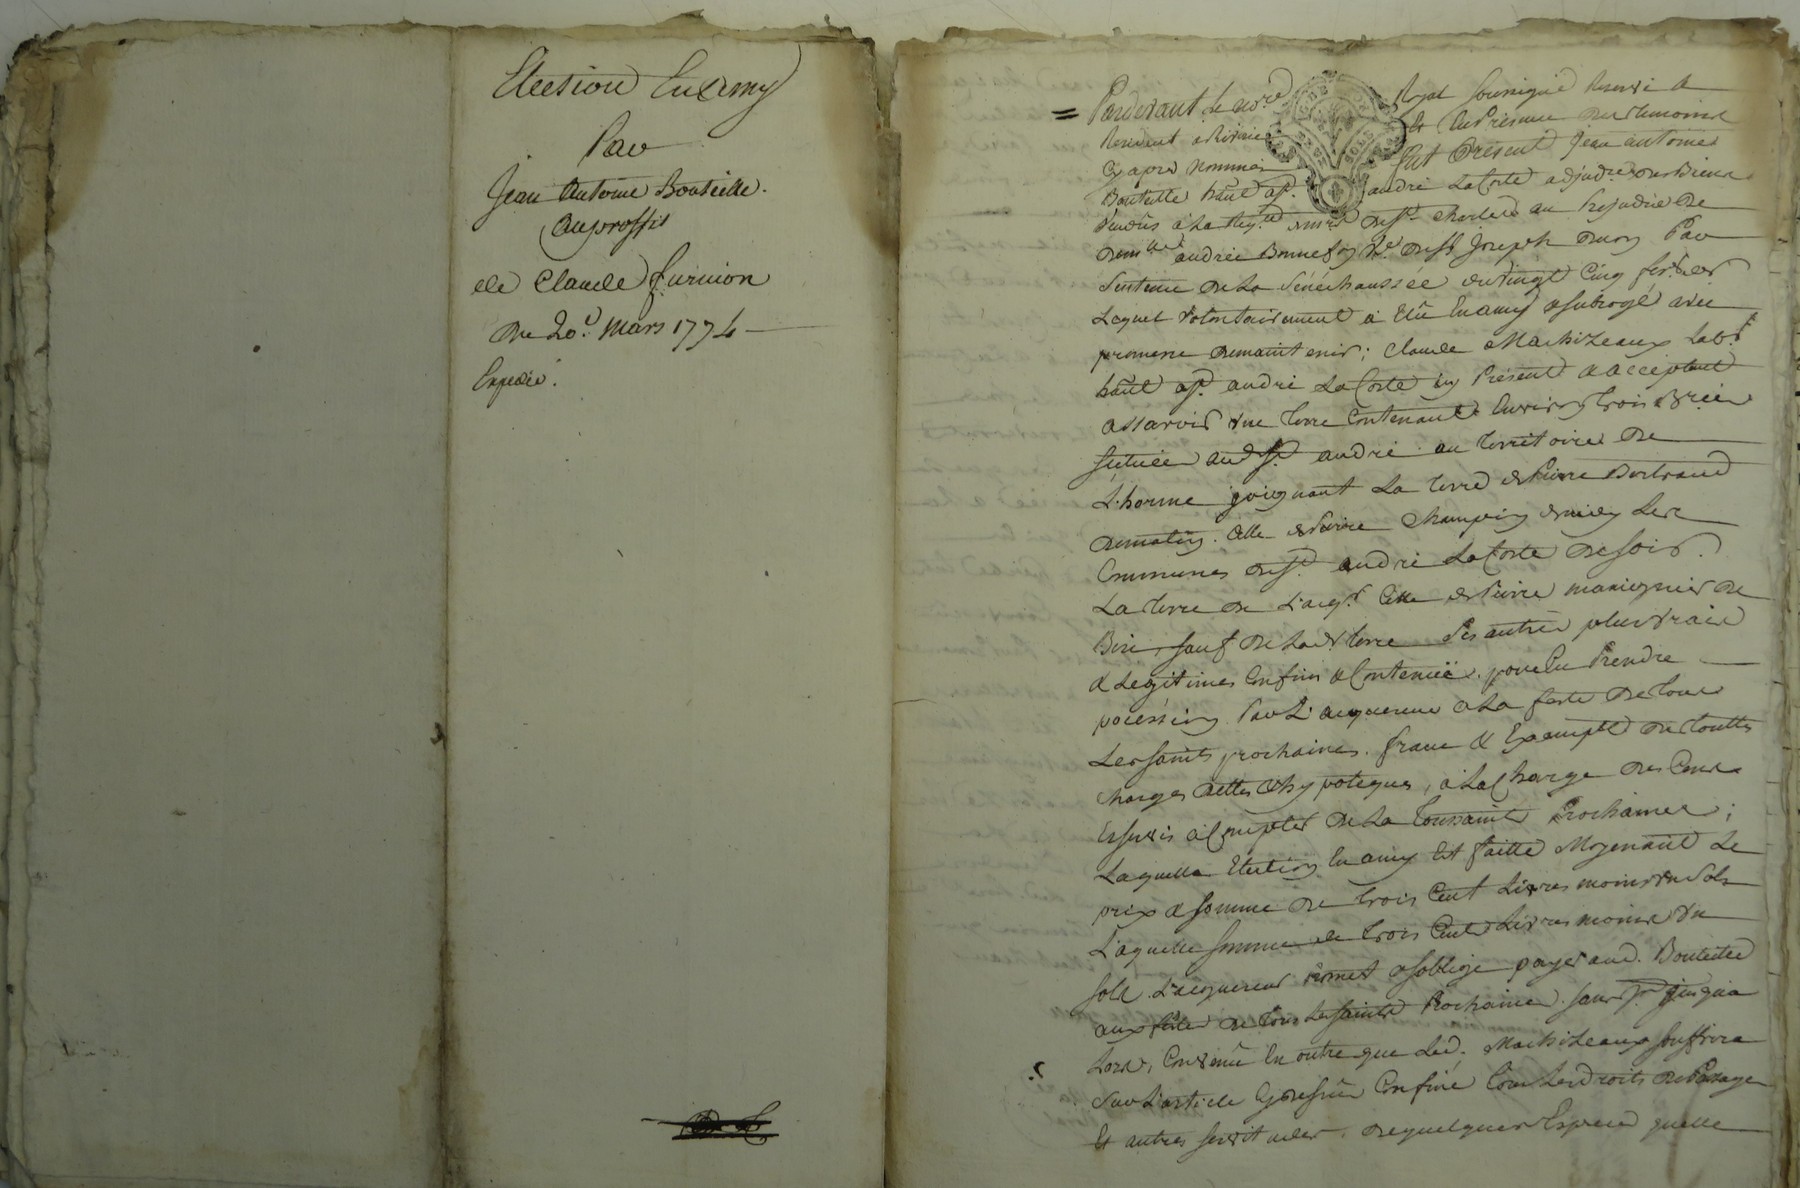 Election En amy
Par
Jean Antoine Bouteille.
Au proffit
de Claude furnion
Du 20.e Mars 1774
Expedié.
Pardevant le no.re Royal soussigné Reservé a
Resident a et En Presence des temoins
Cy apres Nommés fut Present Jean antoine
Bouteille hãnt a St. andré La Coste adjud.re des Biens
vendûs a la Req.te de St. Charles au Prejudice de
dem.lle andrée Bonnefoy V.e de St Joseph Par
Sentence de La Sénéchaussée du vingt Cinq
Lequel volontairement a Elû En amy & subrogé avec
promesse de maintenir; Claude Machizeaux Lab.r
hãnt a St. andré La Coste icy Présent & acceptant
assavoir une terre Contenant Environ trois
Scituée aud. St. andré au territoire de
L'horme joignant La terre de Pierre Bertrand
de matin. Celle de Pierre de midy Les
Communes de St. andré La Coste de soir.
La terre de L'acq.r Celle de Pierre de
Bize, sauf de Lad. terre Ses autres plus vrais
& Legitimes Confins & Contenüe. pour En Prendre
pocession Par L'acquereur a La feste de tous
Les saints prochaines. franc & Exempte de touttes
charges dettes & hypoteques, a La Charge des Cens
Et servis a Compter de La toussaints Prochaines;
Laquelle Election En amy Est faitte Moyenant Le
prix & somme de trois Cent Livres moins un Sols
Laquelle somme de trois Cents Livres moins un
sols. L'acquereur promet & s'obblige payer aud. Bouteille
aux festes de tous Les saints Prochaines. sans jusqu'a
Lors, Convenû En outre que Led. Machizeaux souffrira
sur L'article Cy dessus Confiné tous Les droits de Passage
Et autres servitudes. de quelques Espece quelle